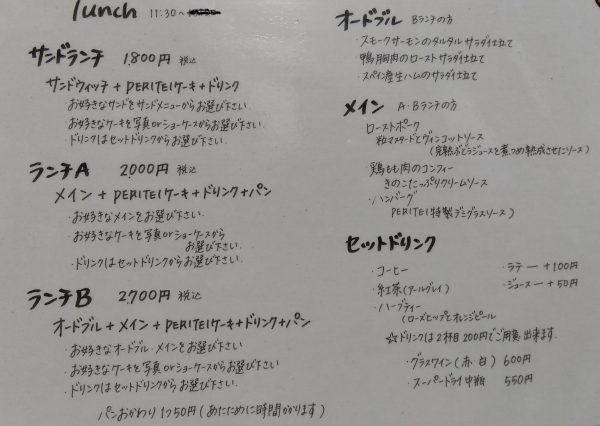 lunch 11:30〜
サンドランチ 1,800円 税込
サンドウィッチ + PERITEIケーキ + ドリンク
お好きなサンドをサンドメニューからお選び下さい.
お好きなケーキを写真orショーケースからお選び下さい.
・ドリンクはセットドリンクからお選び下さい.
ランチA 2,000円 税込
メイン + PERITEIケーキ + ドリンク+パン
・お好きなメインをお選び下さい.
・お好きなケーキを写真orショーケースから
お選び下さい.
・ドリンクはセットドリンクからお選び下さい.
ランチB 2,700円 税込
オードブル + メイン + PERITEIケーキ+ドリンク+パン
・お好きなオードブル・メインをお選び下さい
・お好きなケーキを写真orショーケースからお選び下さい
・ドリンクはセットドリンクからお選び下さい.
パンおかわり1つ50円(あたために時間がかります)
オードブル Bランチの方
・スモークサーモンのタルタル サラダ仕立て
鴨胸肉のロースト サラダ仕立て
・スペイン産生ハムのサラダ仕立て
メイン A・Bランチの方
ローストポーク
粒マスタードとヴィンコットソース
(完熟ぶどうジュースを煮つめ熟成させたソース)
・鶏もも肉のコンフィー
きのこたっぷりクリームソース
・ハンバーグ
PERITEI特製デミグラスソース)
セットドリンク
・コーヒー ・ラテ ー +100円
・紅茶(アールグレイ) ・ジュース ー +50円
・ハーブティー
(ローズヒップとオレンジピール
☆ドリンクは2杯目200円でご用意出来ます.
・グラスワイン(赤、白) 600円
・スーパードライ中瓶 550円